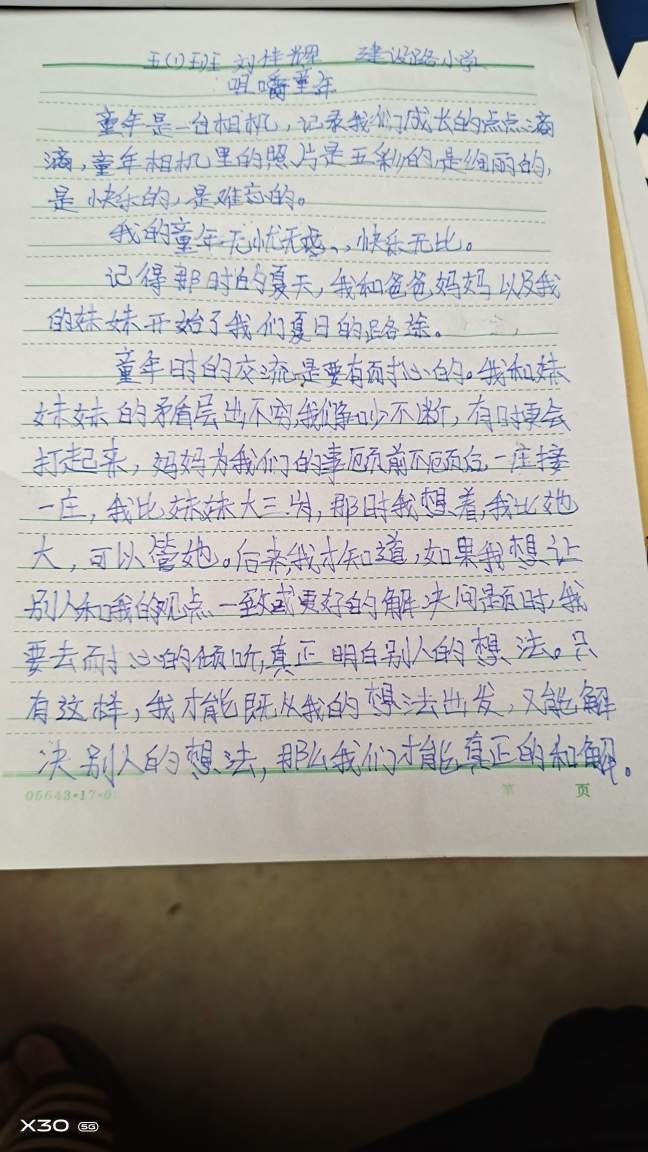 五(1)班 刘佳辉 建设路小学
咀嚼童年
童年是一台相机,记录我们成长的点点滴
滴,童年相机里的照片是五彩的,是绚丽的,
是快乐的,是难忘的。
我的童年无忧无虑、,快乐无比。
记得那时的夏天,我和爸爸妈妈以及我
的妹妹开始了我们夏日的路途。
童年时的交流是要有耐心的。我和妹
妹妹的矛盾层出不穷,我们争吵不断,有时更会
打起来,妈妈为我们的事顾前不顾后,一庄接
一庄,我比妹妹大三岁,那时我想着,我比她
大,可以管她。后来我才知道,如果我想让
别人和我的观点一致或更好的解决问题时,我
要去耐心的倾听,真正明白别人的想法。只
有这样,我才能既从我的想法出发,又能解
决别人的想法,那么我们才能真正的和解。
05643-17-0
第 页
X30 5G